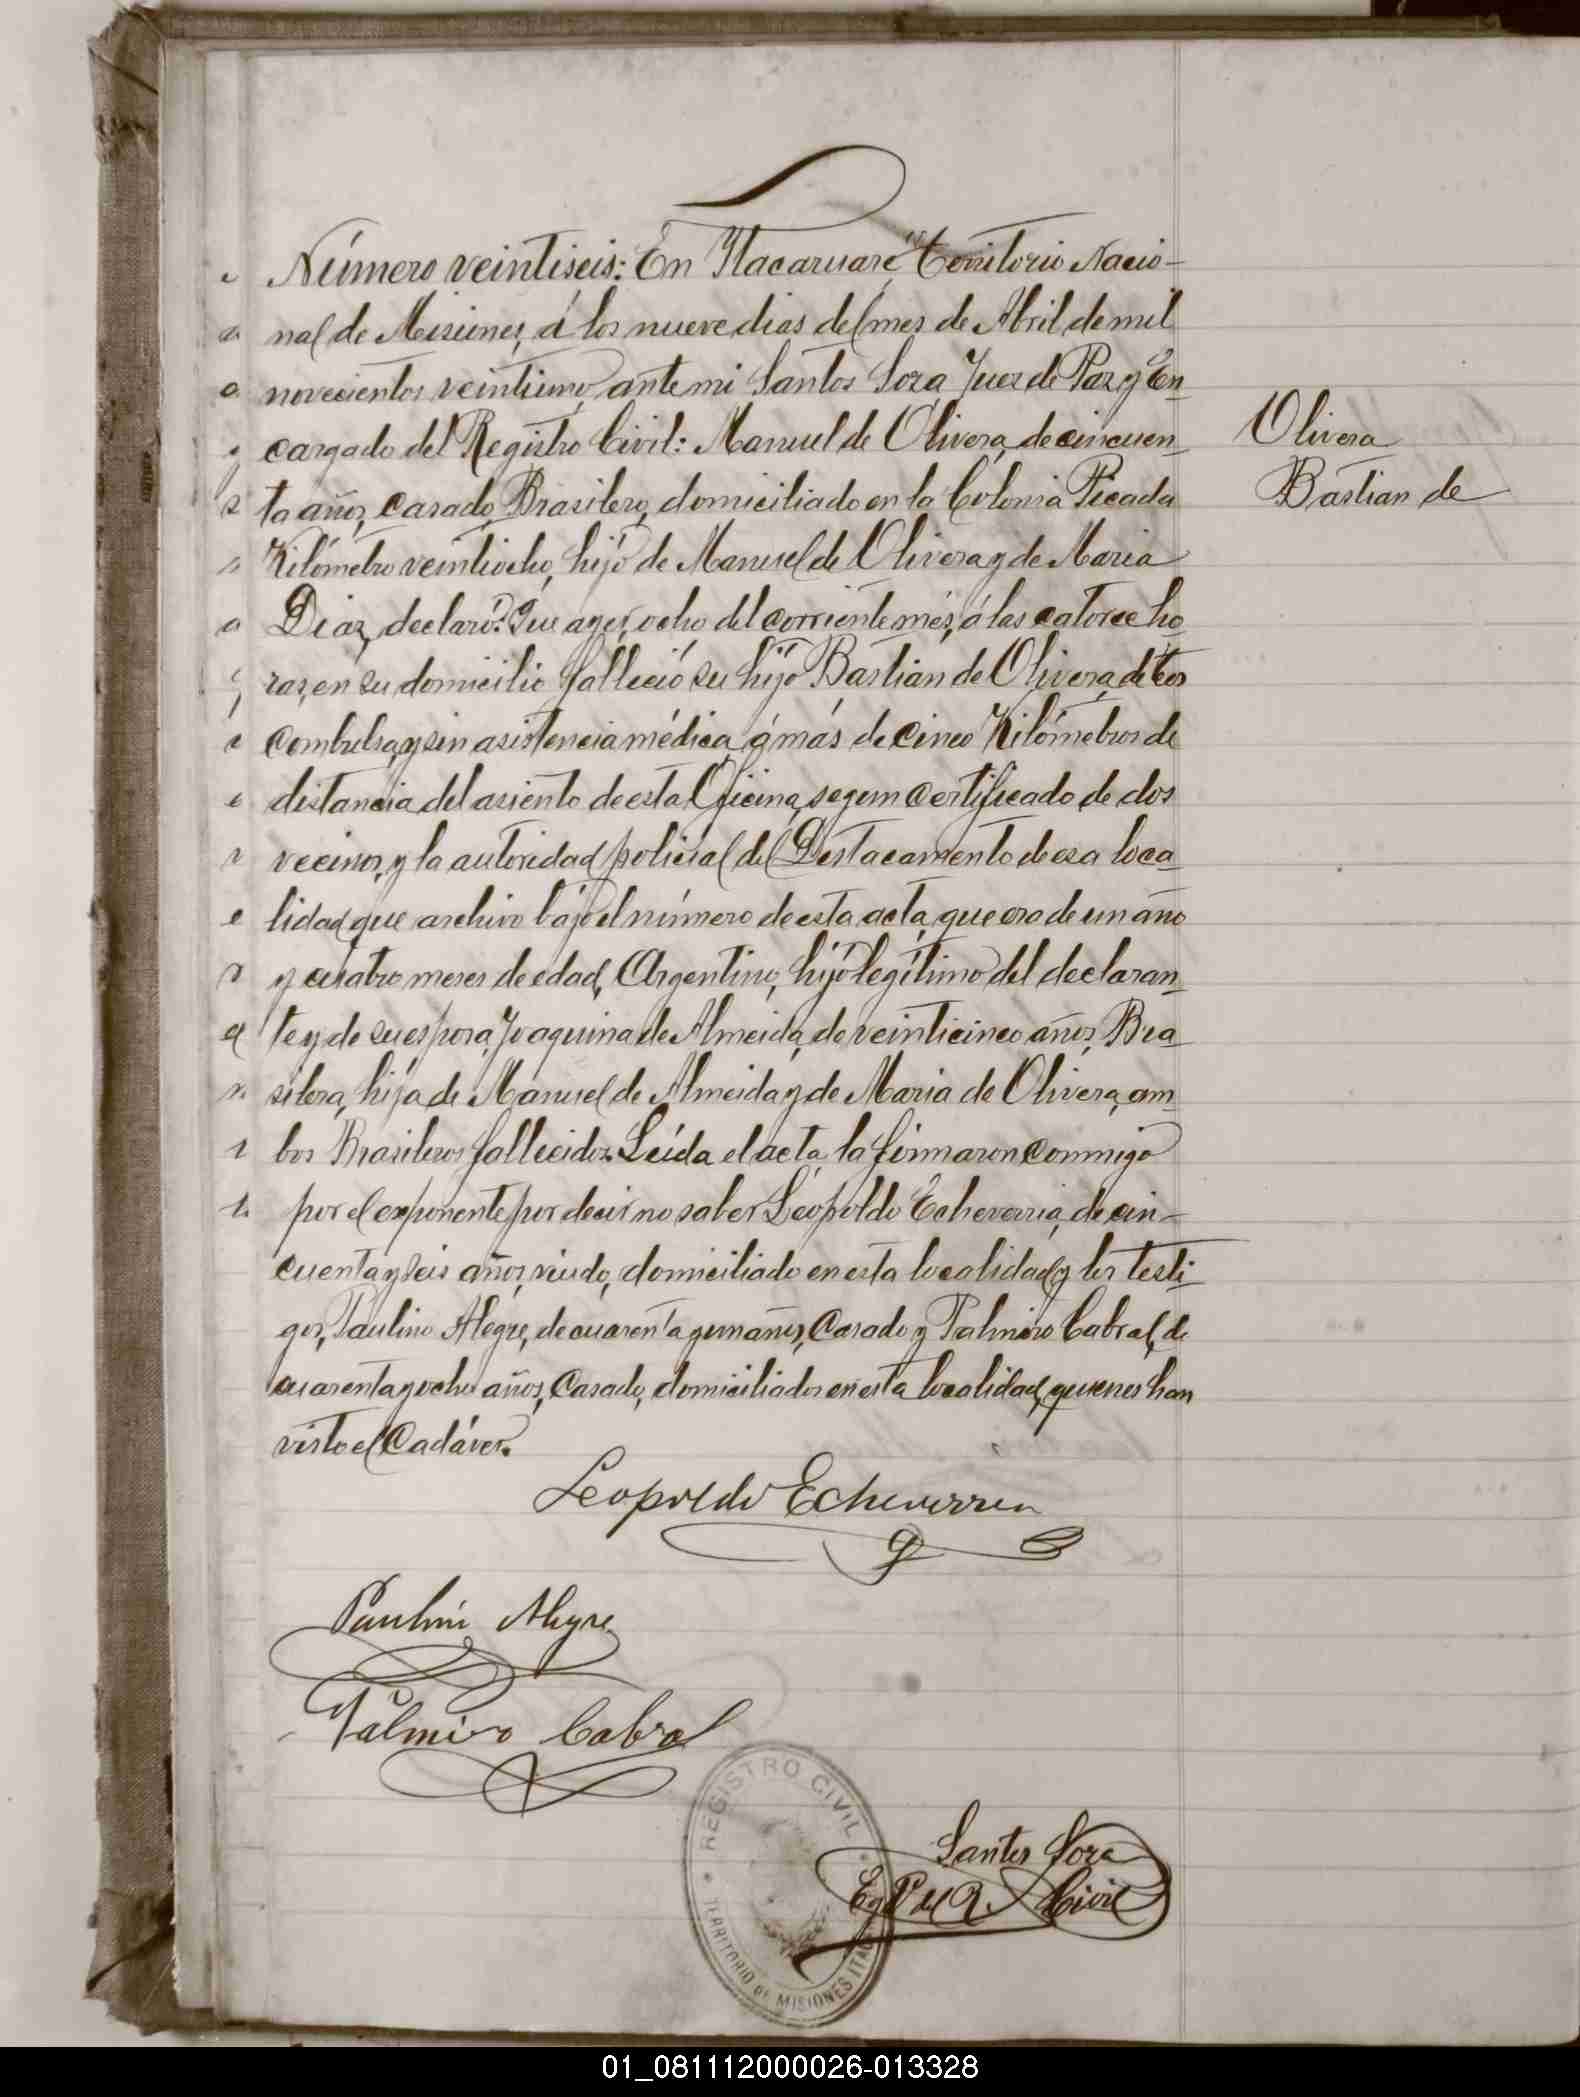 Número veintiseis: En Itacaruaré, Territorio Nacio-
nal de Misiones, á los nueve dias del mes de Abril de mil
novecientos veintiuno, ante mi Santos Sosa Juez de Paz y En-
cargado del Registro Civil: Manuel de Olivera, de cincuen-
ta años, Casado, Brasilero, domiciliado en la Colonia Picada
Kilómetro veintiocho, hijo de Manuel de Olivera y de Maria
Diaz, declaró: Que ayer, ocho del corriente més, á las catorce ho-
ras, en su domicilio falleció su hijo Bastian de Olivera, de tos
combulsa, y sin asistencia médica, á más de cinco Kilómetros de
distancia del asiento de esta Oficina, segun certificado de dos
vecinos, y la autoridad policial del Destacamento de esa loca-
lidad que archivo bajo el número de esta acta, que era de un año
y cuatro meses de edad, Argentino, hijo legítimo del declaran-
te y de su esposa, Joaquina de Almeida, de veinticinco años, Bra-
silera, hija de Manuel de Almeida y de Maria de Olivera, am-
bos Brasileros fallecidos. Leída el acta, la firmaron conmigo
por el exponente por decir no saber Leopoldo Echeverria, de cin-
cuenta y seis años, viudo, domiciliado en esta localidad y los testi-
gos, Paulino Alegre, de cuarenta y un años, Casado y Palmiro Cabral, de
cuarenta y ocho años, Casado, domiciliados en esta localidad, quienes han
visto el Cadáver.
Olivera
Bastian de
Leopoldo Echeverria
Paulino Alegre
Palmiro Cabral
REGISTRO CIVIL
TERRITORIO DE MISIONES
Santos Sosa
Civil
01_081112000026-013328